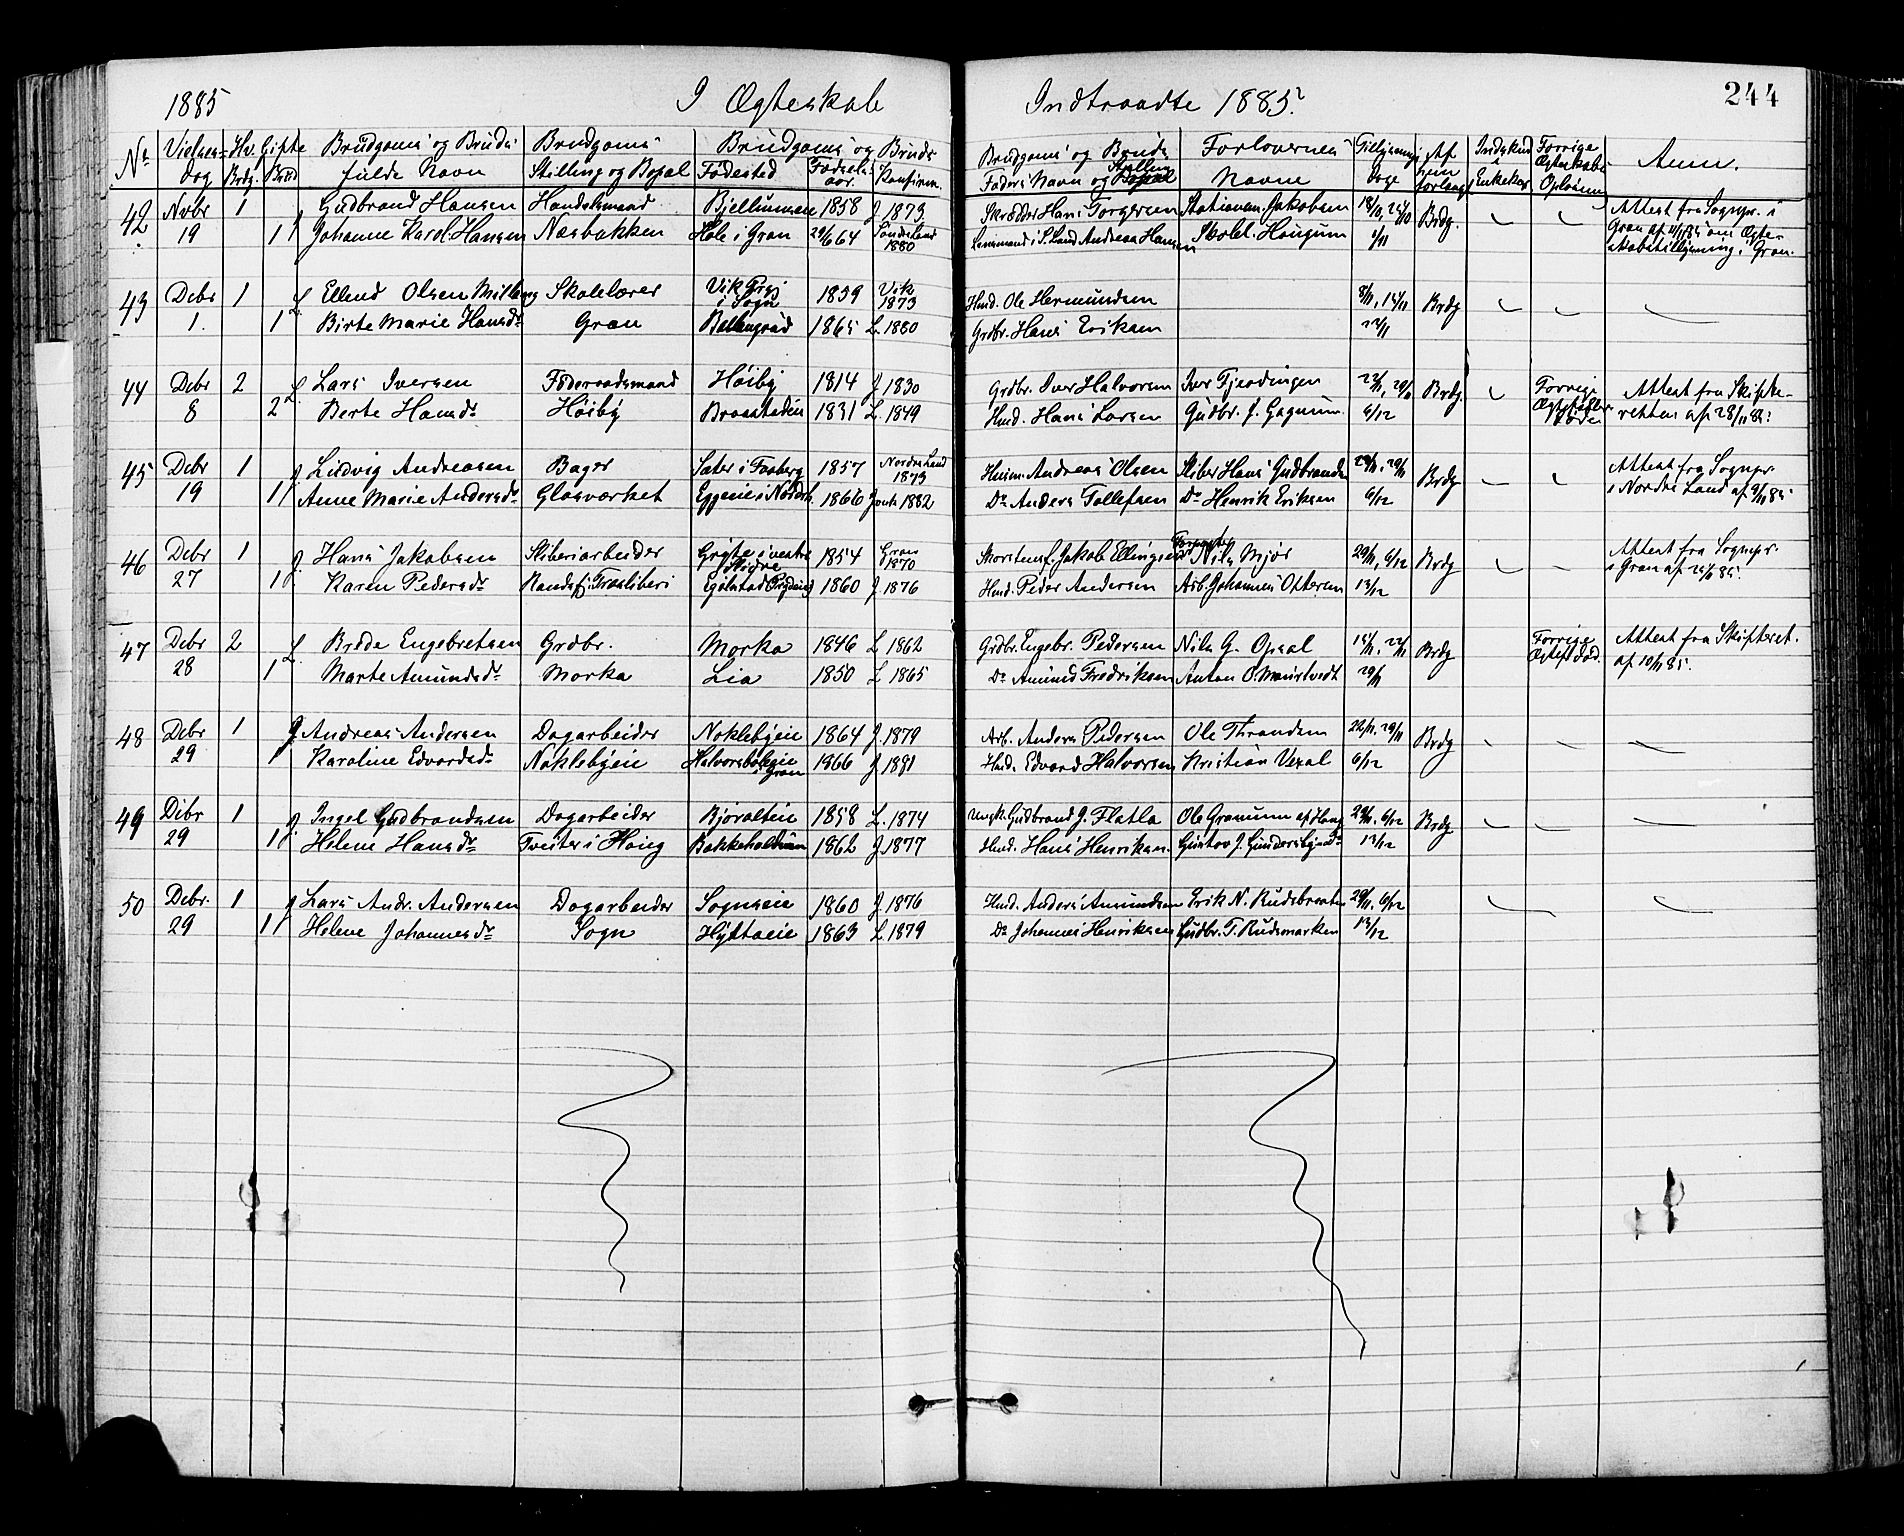 1885 I Ægteskab Indtraadte 1885. 244
No Vielses- Hv. Gifte Brudgoms og Bruds Brudgoms Brudgoms og Bruds
Dag Brdg. Brud fulde Navn Stilling og Bopæl Fødested Fødsels- aar. Konfirm.
Brudgoms og Bruds Forlovernes Tillysnings Af Indskud Forrige Anm.
Faders Navn og Stilling Navne Dage hvem forlangt Enkekas Ægteskabs Opløsning
42 Novbr 1 Gudbrand Hansen Handelsmand Bjellumeie 1858 J 1873. Skrædder Hans Torgersen Stationsm. Jakobsen 18/10, 25/10 Brdg. Attest fra Sognepr. i
19 1 Johanne Karol. Hansen Næsbakken Hole i Gran 29/6 64 Søndre Land 1880 Lensmand i S. Land Andreas Hansen Skolel. Haugum 1/11 Gran af 11/11 85 om Ægte-
skabstillysning i Gran.
43 Debr 1 Ellend Olsen Skolelærer Vik Prgj i Sogn 1859 Vik 1873 Hmd. Ole Hermundsen 8/11, 15/11 Brdg
1. 1 Birte Marie Hansdr Gran 1865 L. 1880 Grdbr. Hans Eriksen 22/11
44 Debr 2 Lars Iversen Føderaadsmand Høiby 1814 J 1830 Grdbr. Iver Halvorsen Iver Fjeldingen 22/11, 29/11 Brdg. Forrige Attest fra Skifte-
8 2 Berte Hansdr Høiby Braastadeie 1831 L. 1849 Hmd. Hans Larsen Gudbr. J. Gagnum 6/12 retten af 28/11 85.
45 Debr 1 Ludvig Andreasen Bager Sæter i Torberg 1857 Nordre Land 1873 Husm. Andreas Olsen Sliber Hans Gudbrands 22/11, 29/11 Brdg Attest fra Sognepr.
19 1 Anne Marie Andersdr Glasværket Eggeneie i Nordreh. 1866 1882 Do Anders Tollefsen Do Henrik Eriksen 6/12 i Nordre Land af 9/11 85
46 Debr 1 Hans Jakobsen Sliberiarbeider 1854 Gran 1870 Skorstensf. Jakob Ellingsen Nils Mjør 29/11, 6/12 Brdg Attest fra Sognepr.
27 1 Karen Pedersdr Randsfj. Træsliberi 1860 J 1876 Hmd. Peder Andersen Arb. Johannes Ottersen 13/12 i Gran af
47 Debr 2 Brede Engebretsen Grdbr. Morka 1846 L 1862 Grdbr. Engebr. Pedersen Nils G. Opsal 15/11, 22/11 Brdg Forrige Attest fra Skifteret.
28 1 Marte Amundsdr Morka Lia 1850 L 1865 Do Amund Fredriksen Anton O. 29/11 Ægtef. død. af 10/11 85.
48 Debr 1 Andreas Andersen Dagarbeider Noklebyeie 1864 J 1879 Arb. Anders Pedersen Ole Thrandsen 22/11, 29/11 Brdg
29 1 Karoline Edvardsdr Noklebyeie Halvorsboleie i Gran 1866 J 1881 Husm. Edvard Halvorsen Kristian Vexal 6/12
49 Debr 1 Ingel Gudbrandsen Dagarbeider Bjøralteie 1858 L. 1874 Ungk. Gudbrand J. Flatla Ole Granum af Haug 29/11, 6/12 Brdg
29 1 Helene Hansdr Tveiter i Haug 1862 J 1877 Hmd. Hans Henriksen Gustav J. 13/12
50 Debr. 1 Lars Andr. Andersen Dagarbeider Sognseie 1860 J 1876 Hmd. Anders Amundsen Erik N. Rudsbraaten 29/11, 6/12
29 1 Helene Johannesdr Sogn Hyttaeie 1863 L 1879 Do Johannes Henriksen Gudbr. T. Rudsmarken 13/12